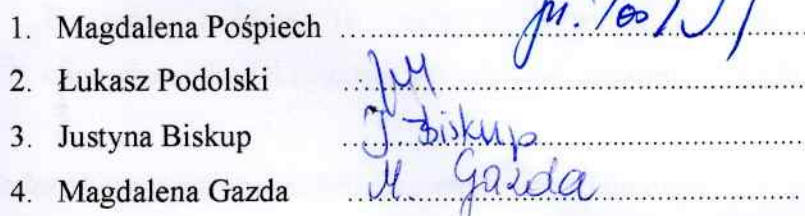 1. Magdalena Pośpiech
2. Łukasz Podolski
3. Justyna Biskup J Biskup
4. Magdalena Gazda M. Gazda